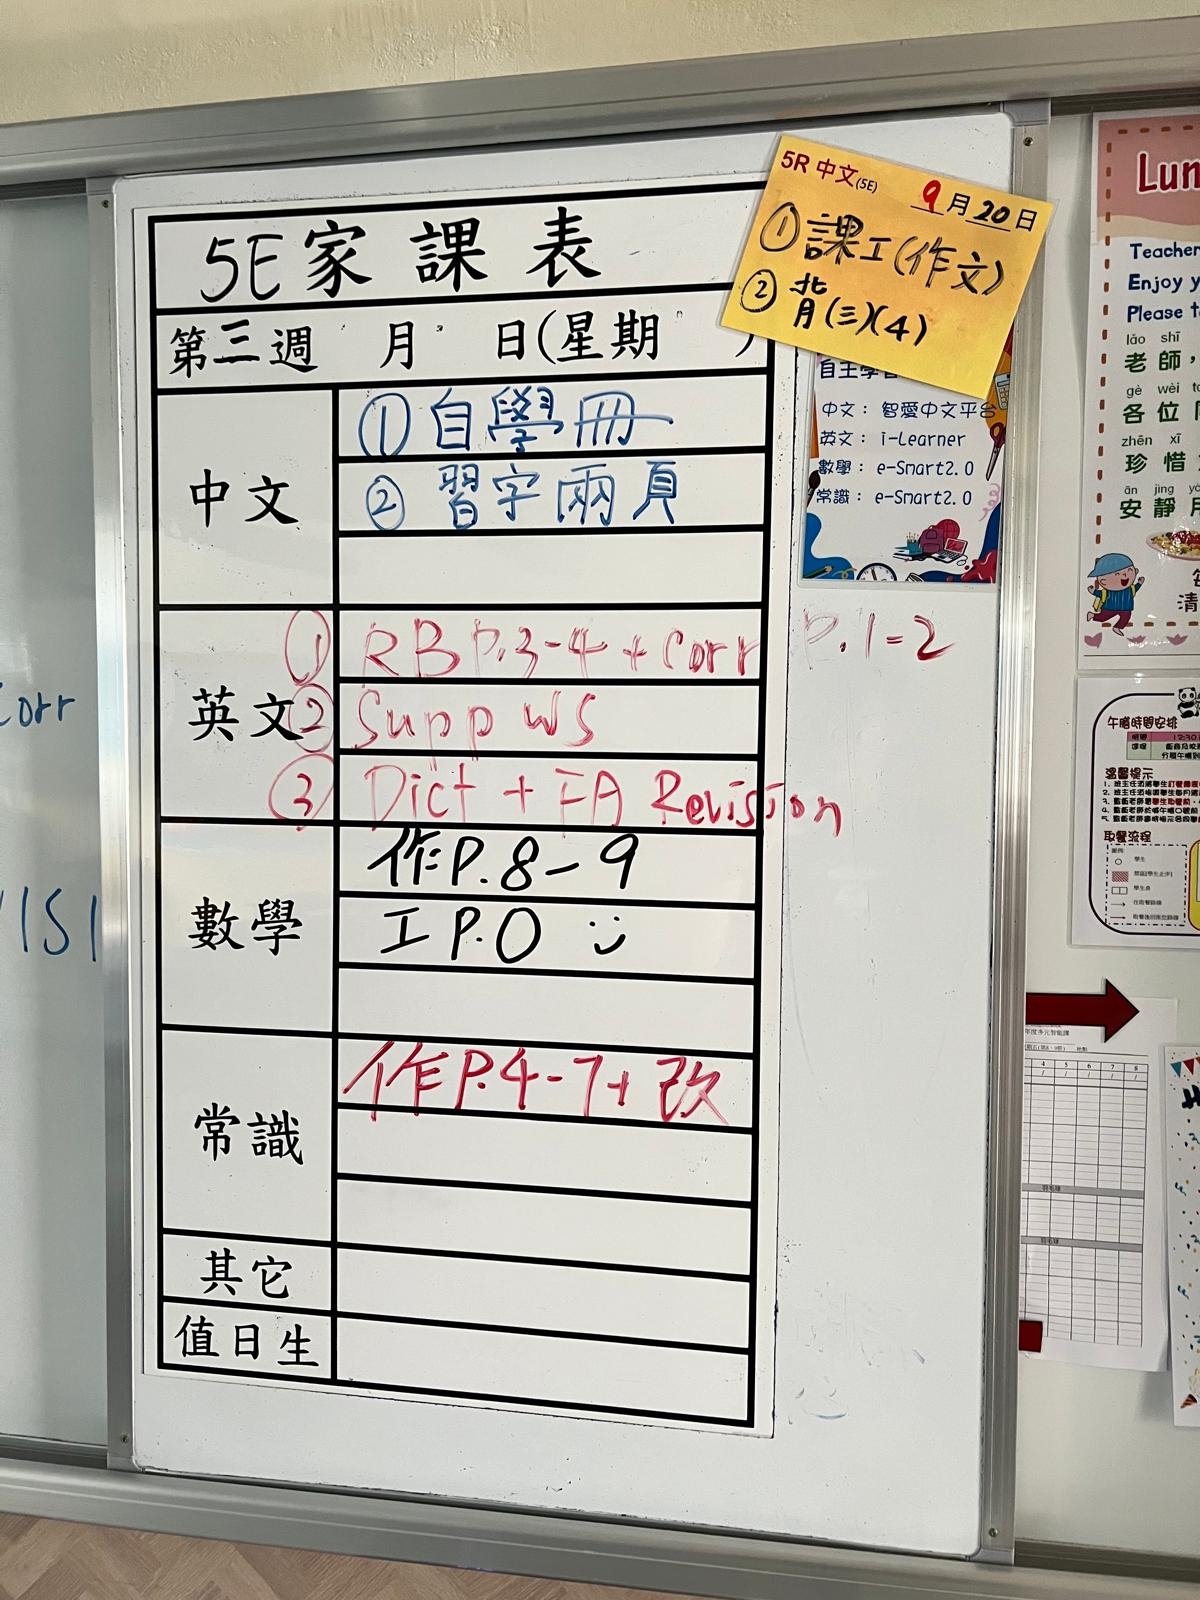 5E家課表
第三週 月 日(星期 )
中文
① 自學冊
② 習字兩頁
英文
① RB P.3-4 + Corr P.1-2
② Supp WS
③ Dict + FA Revision
數學
作P.8-9
工 P.0 :)
常識
作P.4-7+改
其它
值日生
5R 中文(5E) 9月20日
① 課工(作文)
② 背(三)(4)
自主學
中文： 智愛中文平台
英文： i-Learner
數學： e-Smart2.0
常識： e-Smart2.0
Corr
VISI
Lun
Teacher
Enjoy y
Please t
lǎo shī
老師，
gè wèi
各位
zhēn xī
珍惜
ān jìng
安靜
清
午膳時間安排
12:30
溫馨提示
取餐流程
學生
4 5 6 7 8